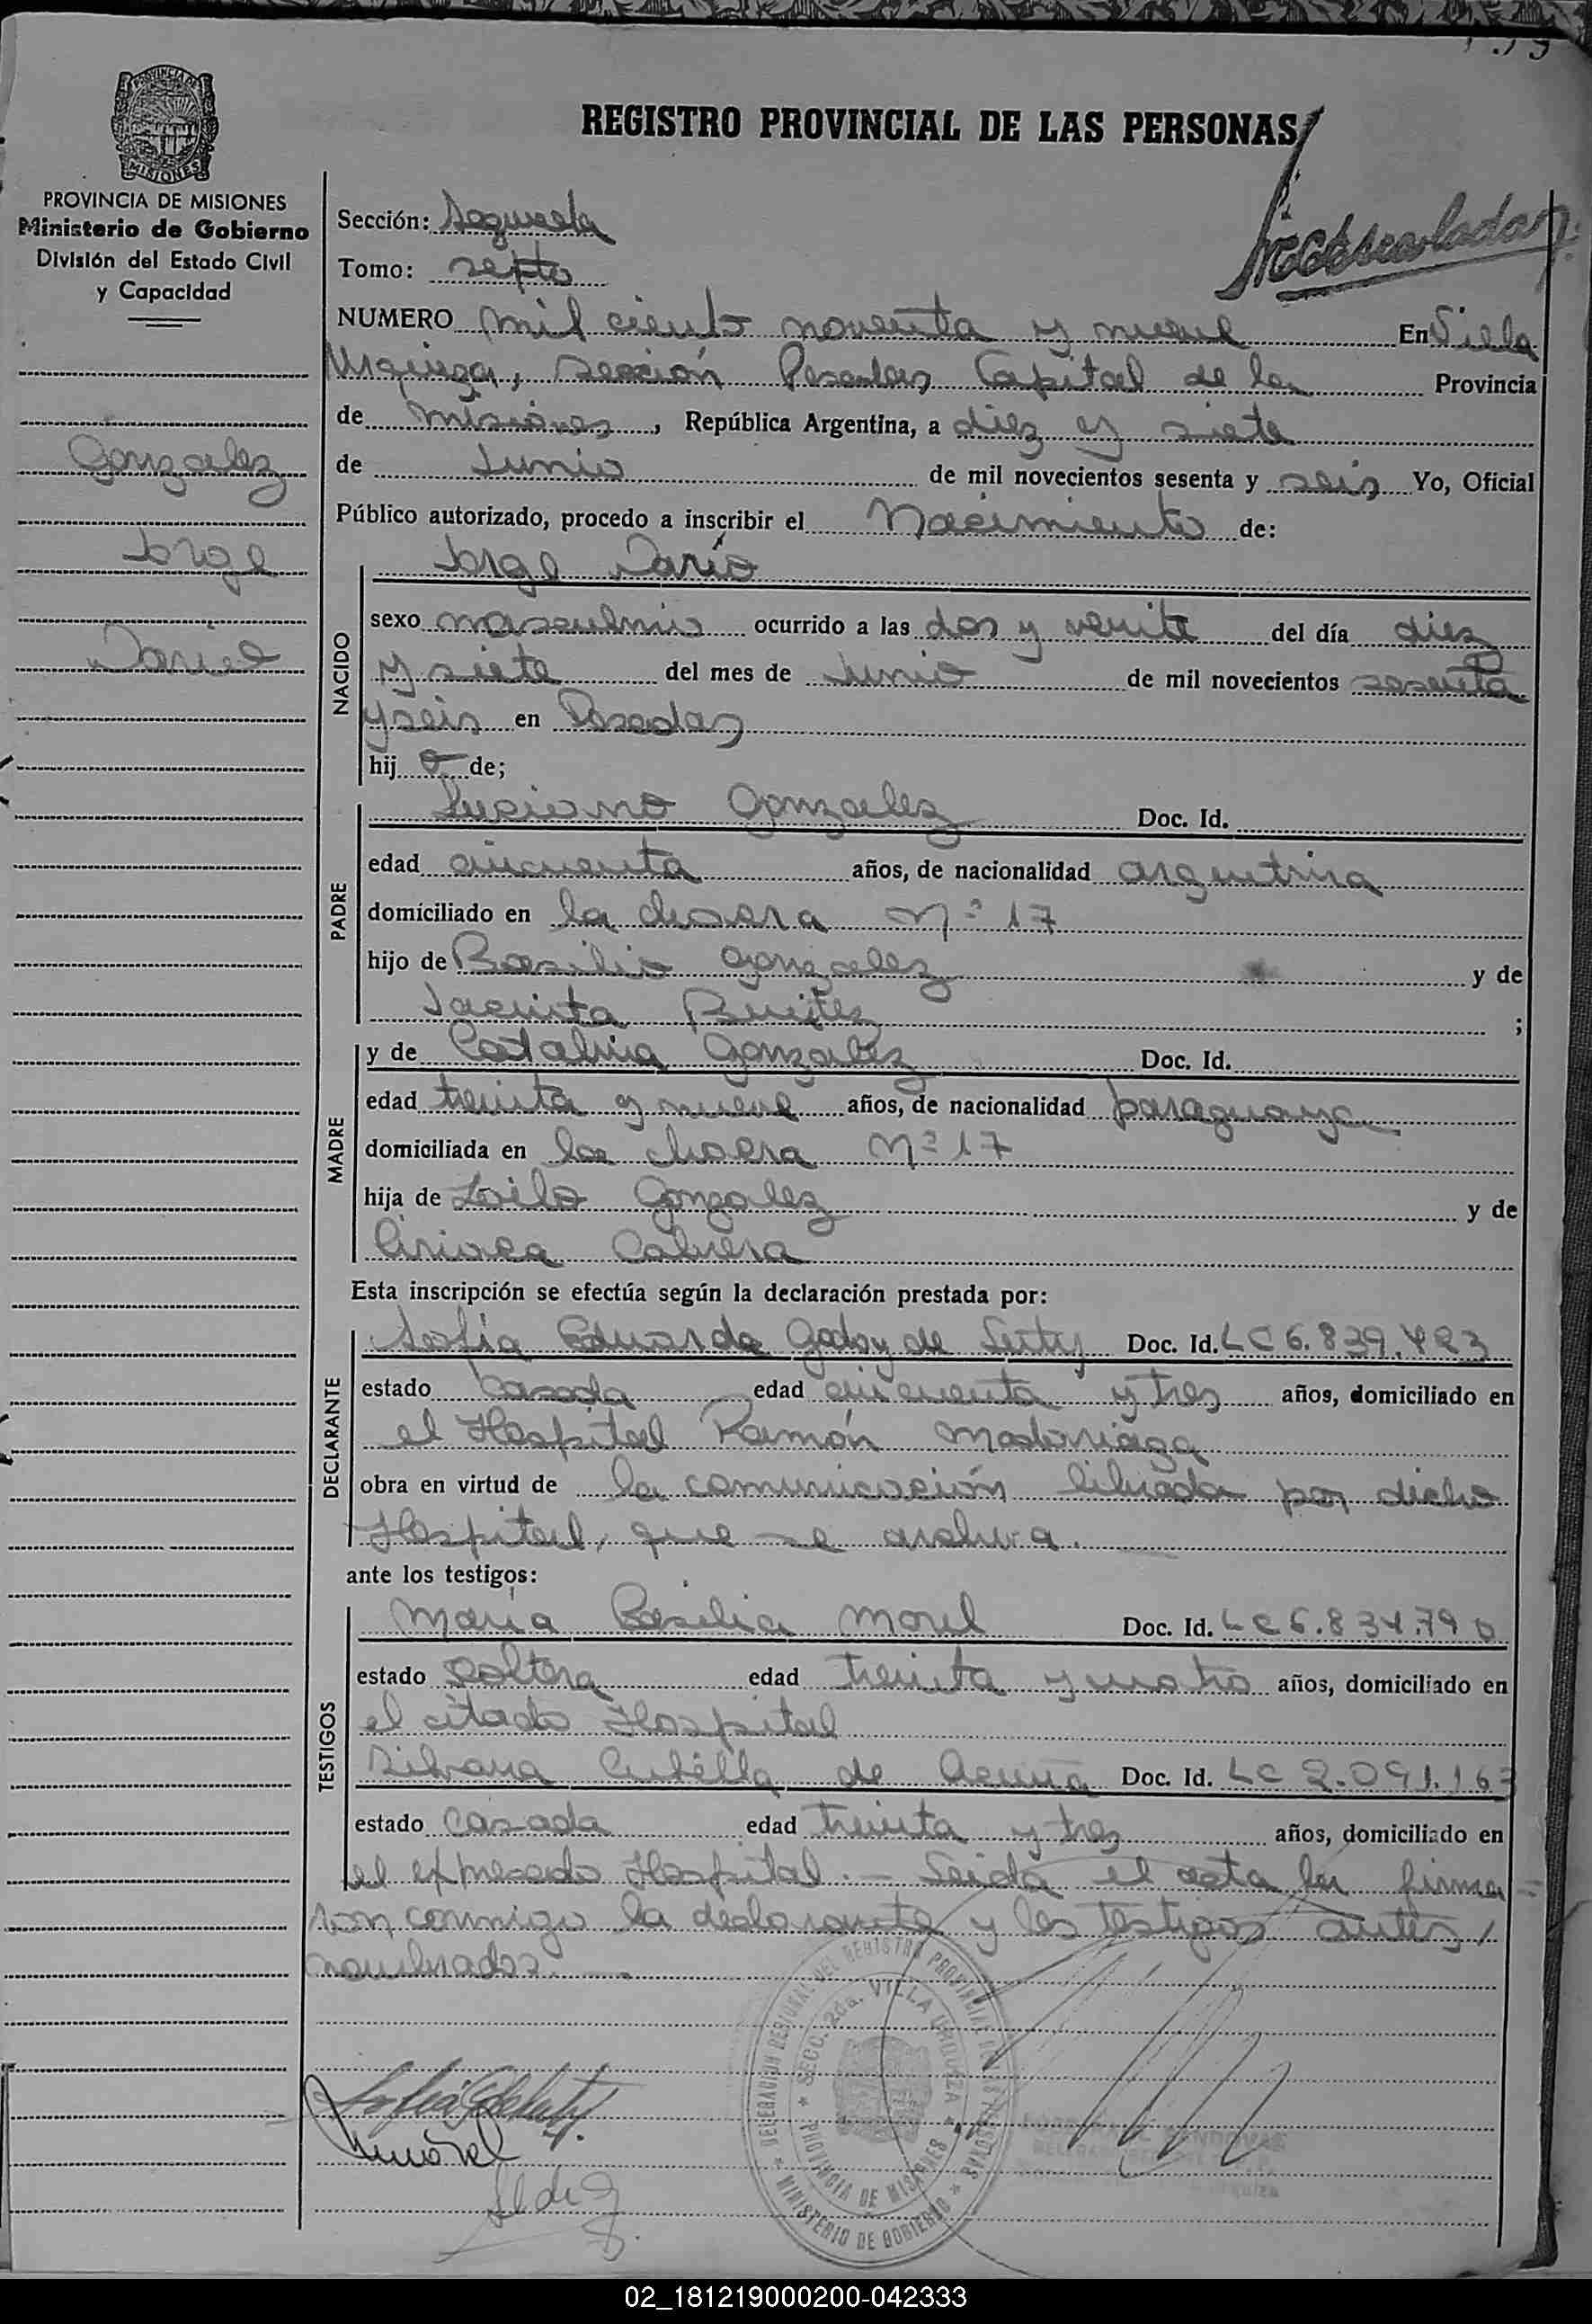 REGISTRO PROVINCIAL DE LAS PERSONAS
PROVINCIA DE MISIONES
Ministerio de Gobierno
División del Estado Civil
y Capacidad
Gonzalez
Jorge
Dario
Sección: Segunda
Tomo: septo
NUMERO mil ciento noventa y nueve En Villa
Urquiza, sección Posadas Capital de la Provincia
de Misiones, República Argentina, a diez y siete
de Junio de mil novecientos sesenta y seis Yo, Oficial
Público autorizado, procedo a inscribir el Nacimiento de:
Jorge Darío
NACIDO
sexo masculino ocurrido a las dos y veinte del día diez
y siete del mes de Junio de mil novecientos sesenta
y seis en Posadas
hijo de;
PADRE
Luciano Gonzalez Doc. Id.
edad cincuenta años, de nacionalidad argentina
domiciliado en la chacra Nº 17
hijo de Basilio Gonzalez y de
Jacinta Benitez ;
MADRE
y de Catalina Gonzalez Doc. Id.
edad treinta y nueve años, de nacionalidad paraguaya
domiciliada en la chacra Nº 17
hija de Zoilo Gonzalez y de
Ciriaca Cabrera
Esta inscripción se efectúa según la declaración prestada por:
DECLARANTE
Sofia Eduarda Godoy de Doc. Id. LC 6.839.423
estado casada edad cincuenta y tres años, domiciliado en
el Hospital Ramón Madariaga
obra en virtud de la comunicación librada por dicho
Hospital, que se archiva.
ante los testigos:
TESTIGOS
María Basilia Morel Doc. Id. LC 6.834.790
estado soltera edad treinta y cuatro años, domiciliado en
el citado Hospital
Silvana de Acuña Doc. Id. LC 2.091.163
estado casada edad treinta y tres años, domiciliado en
el expresado Hospital.- Leida el acta la firma=
ron conmigo la declarante y los testigos antes/
nombrados.-
DELEGACION REGIONAL DEL REGISTRO PROVINCIAL DE LAS PERSONAS
SECC. 2da. VILLA URQUIZA
PROVINCIA DE MISIONES
MINISTERIO DE GOBIERNO
Morel
02_181219000200-042333